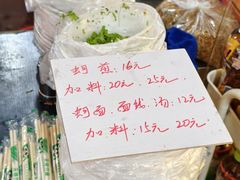 蚵煎:16元
加料:20元、25元.
蚵面、面线、汤:12元
加料:15元 20元.